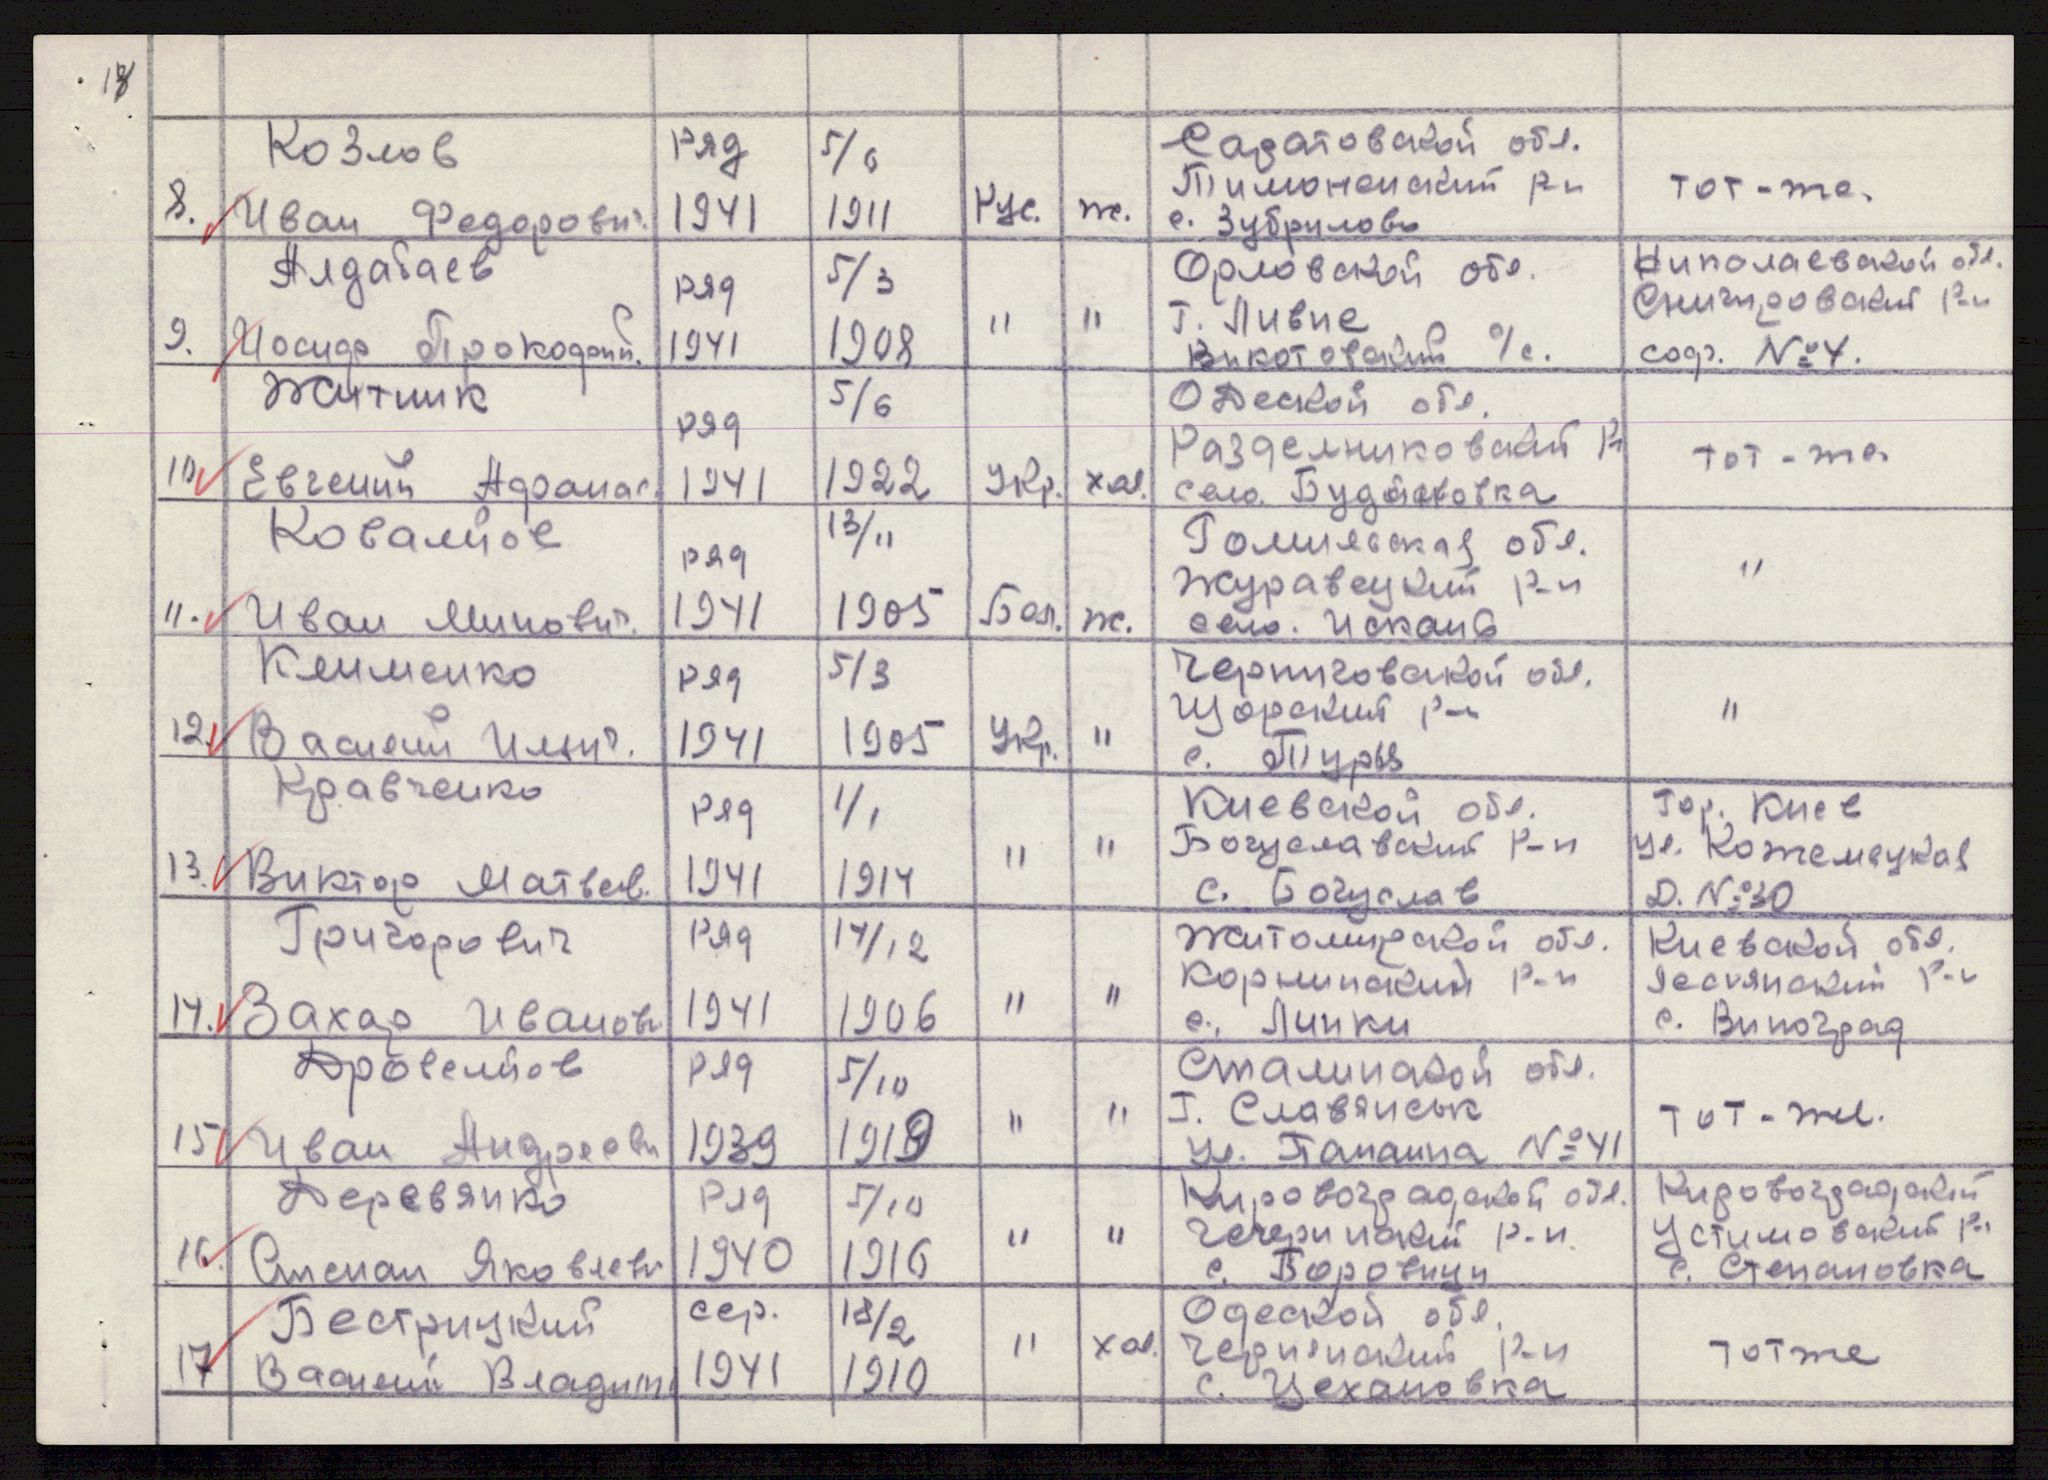 18
Козлов ряд 5/6 Саратовской обл.
Тимоненский р-н тот-же.
8. Иван Федорович. 1941 1911 Рус. ж. с. Зубрилово
Алдабаев ряд 5/3 Орловской обл. Николаевской обл.
" " г. Ливне Снигировский р-н
9. Иосиф Прокофий. 1941 1908 Викотовский с/с. совх. №4.
Житник ряд 5/6 Одеской обл.
Разделниковский р-н тот-же
10 Евгений Афанас. 1941 1922 Укр. хол. село. Будёновка
Ковалёов ряд 13/11 Гомильская обл.
Журавецкий р-н "
11. Иван Минович. 1941 1905 Бел. ж. село.
Клименко ряд 5/3 Черниговской обл.
Щорский р-н "
12. Василий Ильич. 1941 1905 Укр. " с. Турья
Кравченко ряд 1/1 Киевской обл. гор. Киев
" " Богуславский р-н ул. Кожемецкая
13. Виктор Матвеев. 1941 1914 с. Богуслав д. №30
Григорович ряд 14/12 Житомирской обл. Киевской обл.
" " Корнинский р-н р-н
14. Захар Иванови 1941 1906 с. Липки с. Виноград
ряд 5/10 Сталинской обл.
" " г. Славянськ тот-же.
15 Иван Андрееви 1939 1919 ул. Папанина №41
Деревянко ряд 5/10 Кировоградской обл. Кировоградский
" " Чечеринский р-н. Устимовский р-н
16. Степан Яковлеви 1940 1916 с. Боровици с. Степановка
Бестрицкий сер. 18/2 Одеской обл.
" хол. Чернянский р-н тотже
17 Василий Владими 1941 1910 с. Цехановка